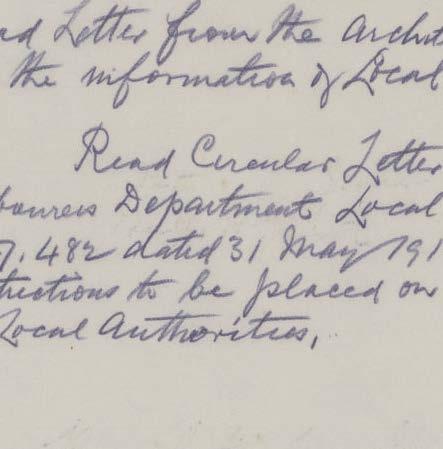 ad Letter from the Archit
the information of Local
Read Circular Letter
bourers Department Local
7.482 dated 31 May 191
tructions to be placed on
Local Authorities,